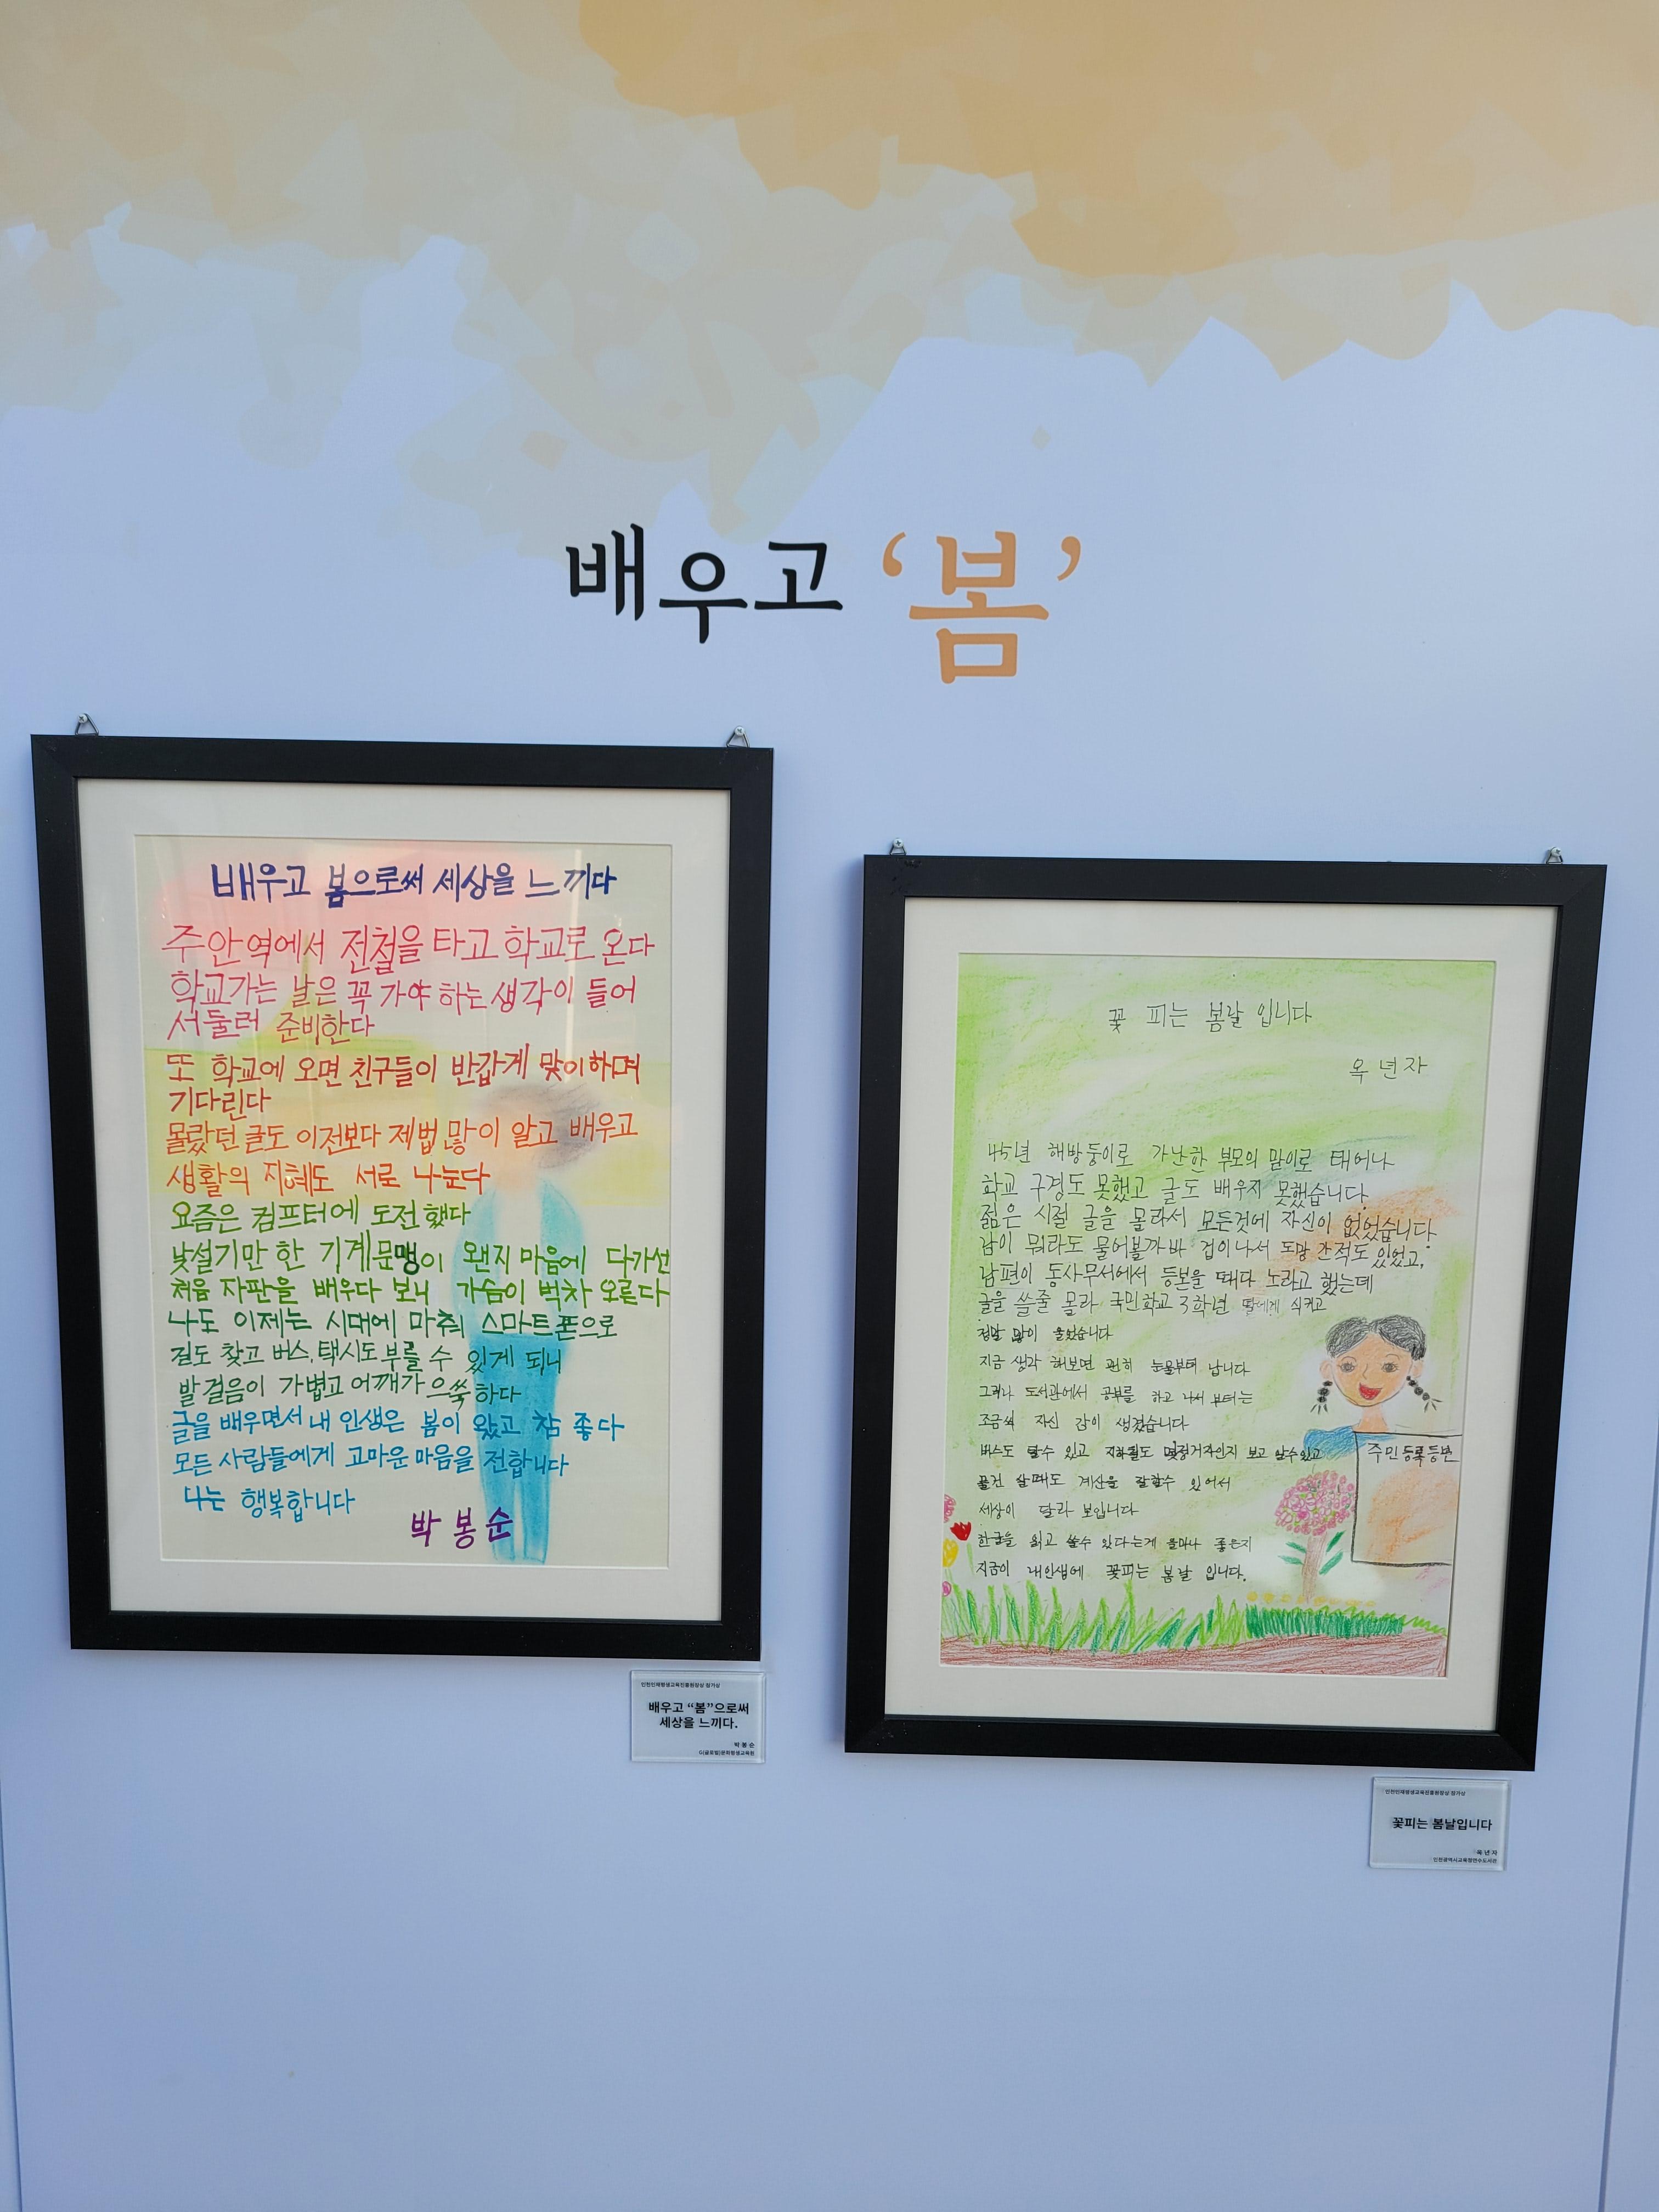 배우고 ‘봄’
배우고 봄으로써 세상을 느끼다
주안역에서 전철을 타고 학교로 온다
학교가는 날은 꼭 가야 하는 생각이 들어
서둘러 준비한다
또 학교에 오면 친구들이 반갑게 맞이하며
기다린다
몰랐던 글도 이전보다 제법 많이 알고 배우고
생활의 지혜도 서로 나눈다
요즘은 컴프터에 도전했다
낯설기만 한 기계문맹이 왠지 마음에 다가선
처음 자판을 배우다 보니 가슴이 벅차 오른다
나도 이제는 시대에 마춰 스마트폰으로
길도 찾고 버스, 택시도 부를 수 있게 되니
발걸음이 가볍고 어깨가 으쓱하다
글을 배우면서 내 인생은 봄이 왔고 참 좋다
모든 사람들에게 고마운 마음을 전합니다
나는 행복합니다
박봉순
인천인재평생교육진흥원장상 참가상
배우고 “봄”으로써
세상을 느끼다.
박봉순
G(글로벌)문화평생교육원
꽃 피는 봄날 입니다
옥년자
45년 해방둥이로 가난한 부모의 맏이로 태어나
학교 구경도 못했고 글도 배우지 못했습니다
젊은 시절 글을 몰라서 모든것에 자신이 없었습니다.
남이 뭐라도 물어볼까봐 겁이나서 도망 간적도 있었고,
남편이 동사무서에서 등본을 떼다 노라고 했는데
글을 쓸줄 몰라 국민학교 3학년 딸에게 식켜고
정말 많이 울었습니다
지금 생각 해보면 괸히 눈물부터 납니다
그러나 도서관에서 공부를 하고 나서 부터는
조금씩 자신 감이 생겼습니다
버스도 탈수 있고 지하철도 몇정거자인지 보고 알수있고
물건 살때도 계산을 잘할수 있어서
세상이 달라 보입니다
한글을 읽고 쓸수 있다는게 얼마나 좋은지
지금이 내인생에 꽃피는 봄날 입니다.
주민등록등본
인천인재평생교육진흥원장상 참가상
꽃피는 봄날입니다
옥년자
인천광역시교육청연수도서관